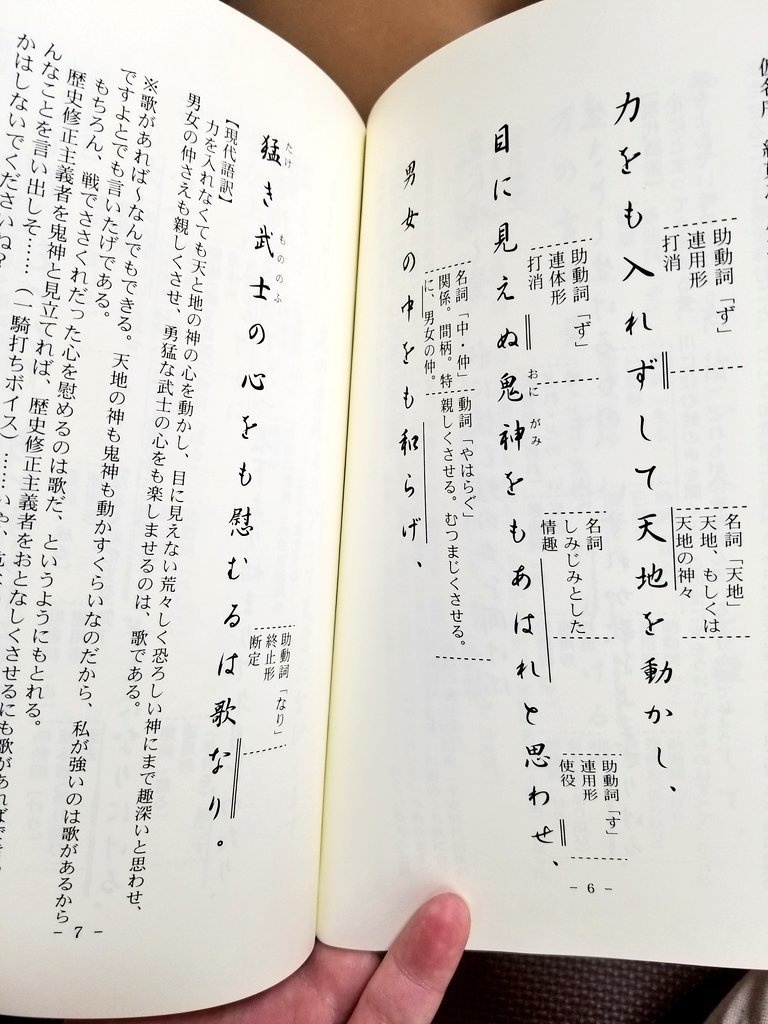 力をも入れずして天地を動かし、
助動詞「ず」
連用形
打消
名詞「天地」
天地、もしくは
天地の神々
目に見えぬ鬼神をもあはれと思わせ、
おに
がみ
助動詞「ず」
連体形
打消
名詞
しみじみとした
情趣
助動詞「す」
連用形
使役
男女の中をも和らげ、
名詞「中・仲」
関係。間柄。特
に、男女の仲。
動詞「やはらぐ」
親しくさせる。むつまじくさせる。
- 6 -
猛き武士の心をも慰むるは歌なり。
たけ
もののふ
助動詞「なり」
終止形
断定
【現代語訳】
力を入れなくても天と地の神の心を動かし、目に見えない荒々しく恐ろしい神にまで趣深いと思わせ、
男女の仲さえも親しくさせ、勇猛な武士の心をも楽しませるのは、歌である。
※歌があれば～なんでもできる。天地の神も鬼神も動かすくらいなのだから、私が強いのは歌があるから
ですよとでも言いたげである。
もちろん、戦でささくれだった心を慰めるのは歌だ、というようにもとれる。
歴史修正主義者を鬼神と見立てれば、歴史修正主義者をおとなしくさせるにも歌があれば
んなことを言い出しそ……（一騎打ちボイス）……いや、
かはしないでくださいね？
- 7 -